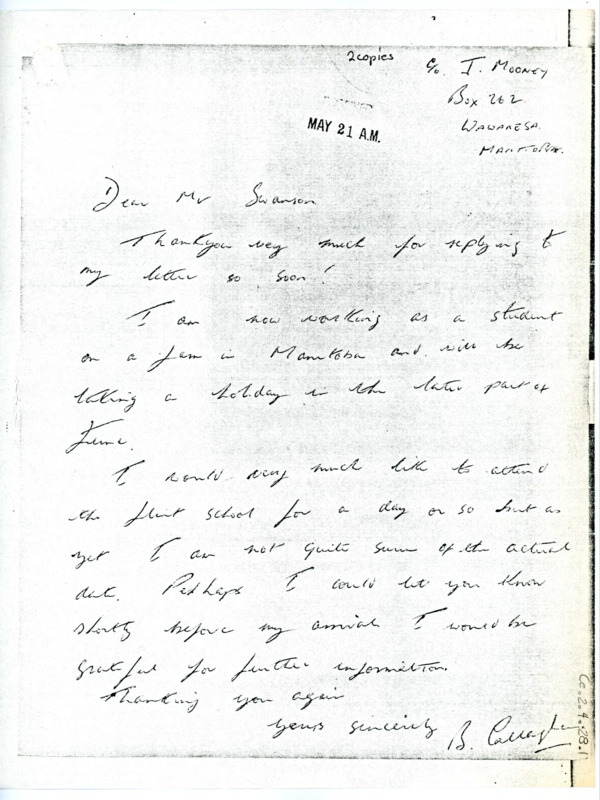 2copies
c/o. I. Mooney
Box 262
Wawanesa.
Manitoba.
MAY 21 A.M.
Dear Mr Swanson
Thankyou very much for replying to
my letter so soon!
I am now working as a student
on a farm in Manitoba and will be
taking a holiday in the later part of
June.
I would very much like to attend
the flint school for a day or so but as
yet I am not quite sure of the actual
date. Perhaps I could let you know
shortly before my arrival I would be
grateful for further information.
Thanking you again
yours sincerely B. Callaghan
Co.2.4.28.1